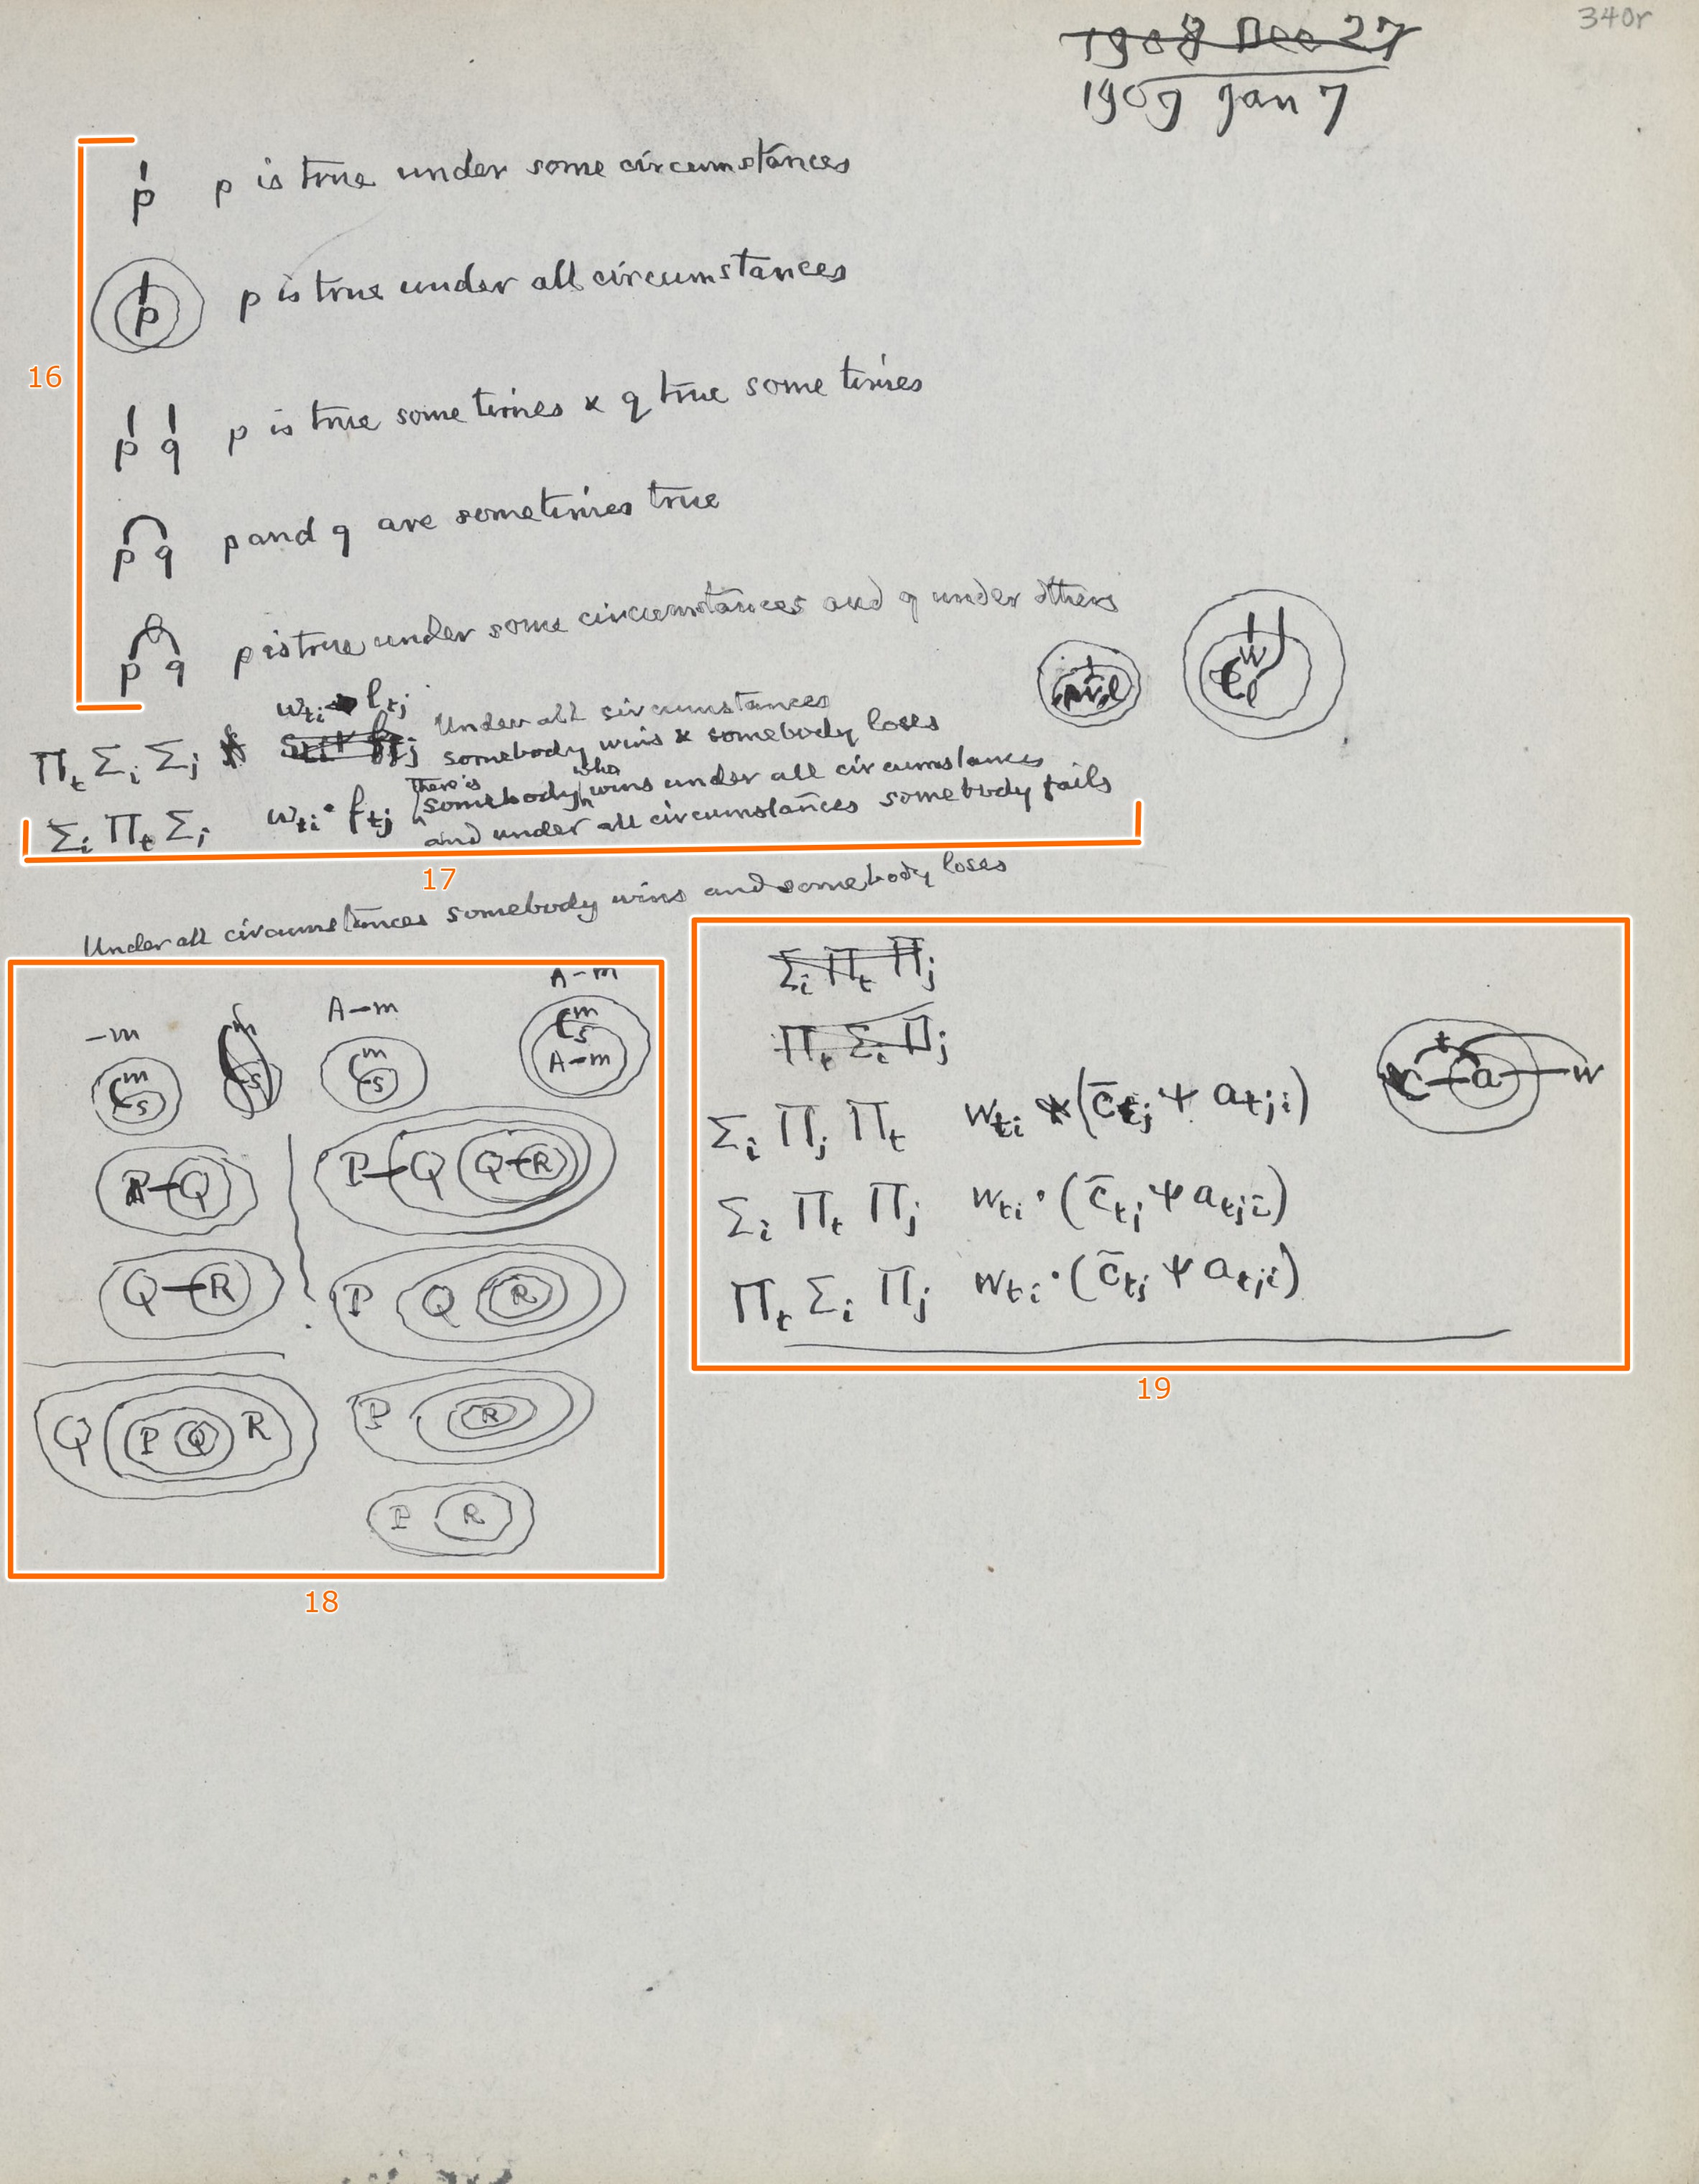 340r
1908 Dec 27
1909 Jan 7
p p is true under some circumstances
p p is true under all circumstances
16
p q p is true sometimes & q true sometimes
p q p and q are sometimes true
p q p is true under some circumstances and q under others
w l
w_ti l_tj Under all circumstances
Π_t Σ_i Σ_j somebody wins & somebody loses
There is somebody who wins under all circumstances
Σ_i Π_t Σ_j w_ti · f_tj and under all circumstances somebody fails
17
Under all circumstances somebody wins and somebody loses
A–m
–m m A–m m
m s s m s s A–m
P–Q P–Q Q–R
Q–R P Q R
Q P Q R P R
P R
18
Σ_i Π_t Π_j
Π_t Σ_i Π_j
Σ_i Π_j Π_t w_ti (c̄_tj Ψ a_tji) t c a w
Σ_i Π_t Π_j w_ti · (c̄_tj Ψ a_tji)
Π_t Σ_i Π_j w_ti · (c̄_tj Ψ a_tji)
19